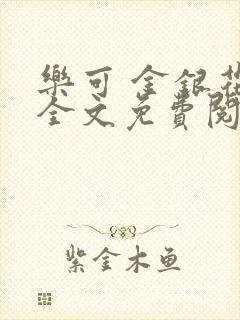 樂可 金銀花
全文免費閱
紫金木鱼